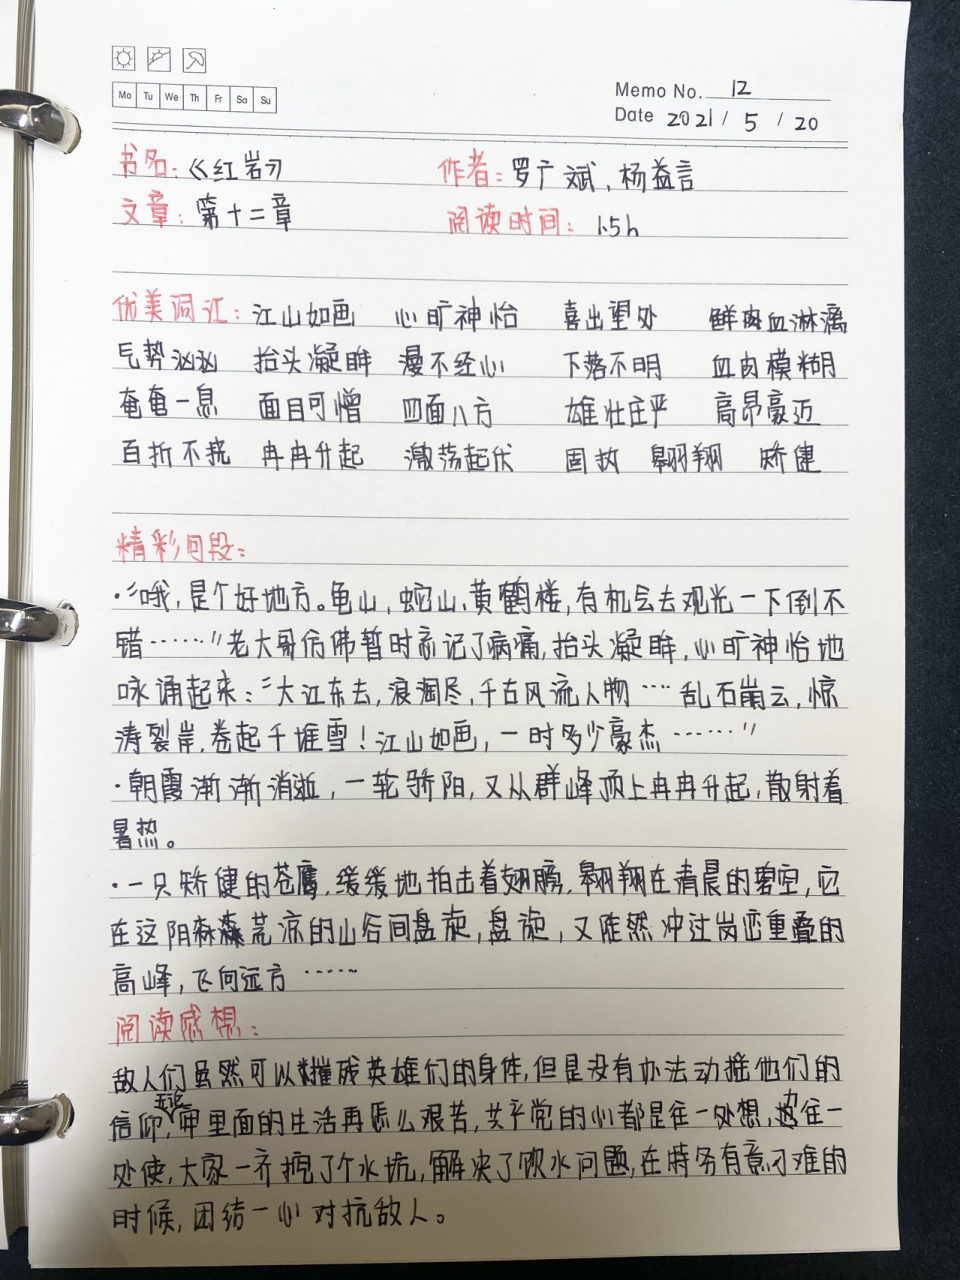 Mo Tu We Th Fr Sa Su
Memo No. 12
Date 2021 / 5 / 20
书名：《红岩》 作者：罗广斌、杨益言
文章：第十二章 阅读时间：1.5h
优美词汇：江山如画 心旷神怡 喜出望外 鲜血淋漓
气势汹汹 抬头凝眸 漫不经心 下落不明 血肉模糊
奄奄一息 面目可憎 四面八方 雄壮庄严 高昂豪迈
百折不挠 冉冉升起 激荡起伏 固执 翱翔 矫健
精彩句段：
·“哦，是个好地方。龟山，蛇山，黄鹤楼，有机会去观光一下倒不
错……”老大哥仿佛暂时忘记了病痛，抬头凝眸，心旷神怡地
咏诵起来：“大江东去，浪淘尽，千古风流人物…… 乱石崩云，惊
涛裂岸，卷起千堆雪！江山如画，一时多少豪杰……”
·朝霞渐渐消逝，一轮骄阳，又从群峰顶上冉冉升起，散射着
暑热。
·一只矫健的苍鹰，缓缓地拍击着翅膀，翱翔在清晨的碧空，它
在这阴森森荒凉的山谷间盘旋，盘旋，又陡然冲过岗峦重叠的
高峰，飞向远方……
阅读感想：
敌人们虽然可以摧残英雄们的身体，但是没有办法动摇他们的
信仰，无论牢里面的生活再怎么艰苦，共产党的心都是往一处想，力往一
处使，大家一齐挖了个水坑，解决了饮水问题，在特务有意刁难的
时候，团结一心对抗敌人。